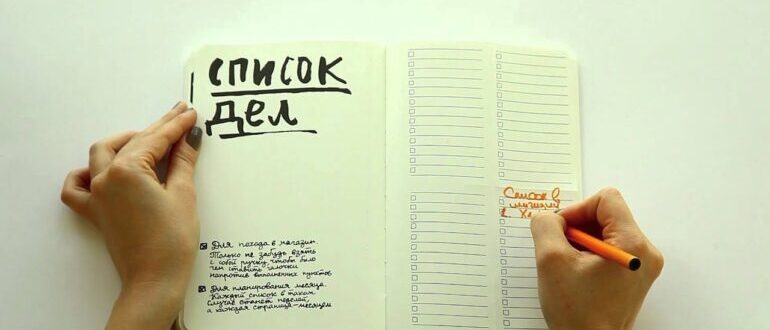 СПИСОК
ДЕЛ
Для похода в магазин.
Только не забудь взять
с собой ручку, чтобы было
чем ставить галочки
напротив выполненных пунктов
Для планирования месяца.
Каждый список в таком
случае станет неделей,
а каждая страница - месяцем
Список в